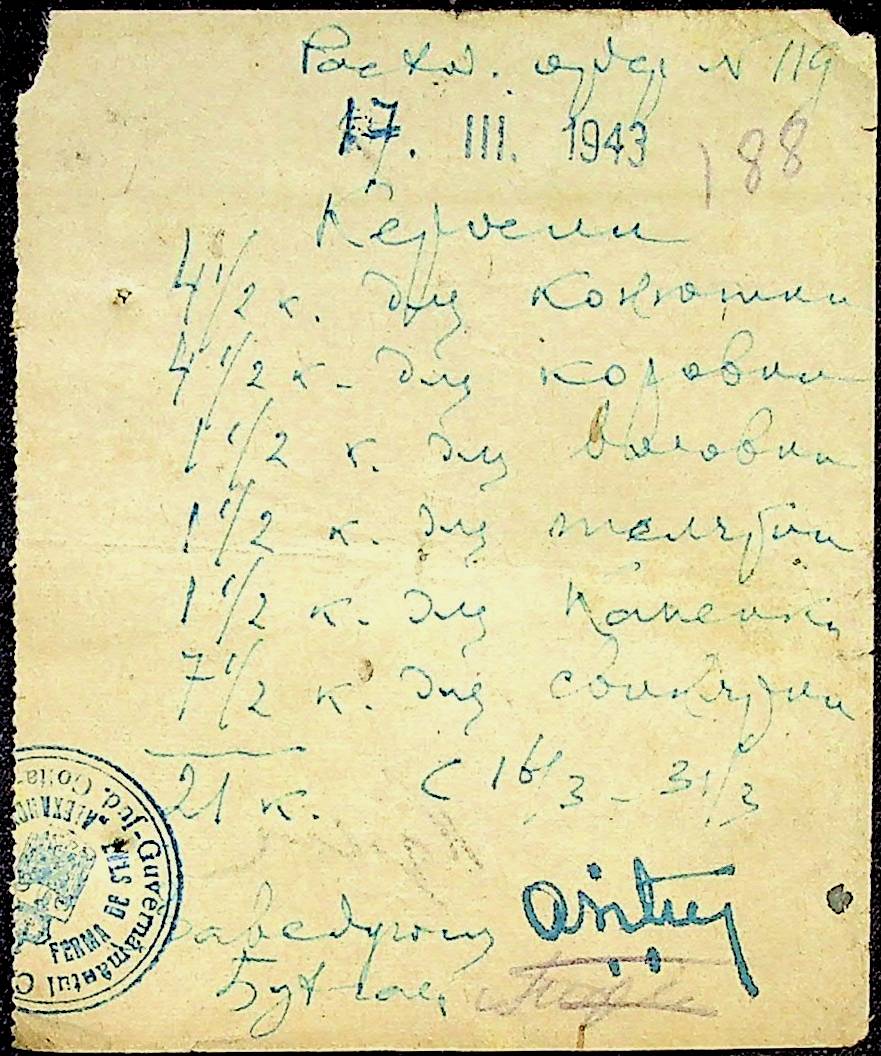 Расход. ордер N 119
17. III. 1943
188
Керосин
4 1/2 к. для конюшни
4 1/2 к. для коровни
1 1/2 к. для воловни
1 1/2 к. для телятни
1 1/2 к. для
7 1/2 к. для свинярни
21 к. С 16/3 - 31/3
Заведующий
Бухгал.
Guvernământul
Jud. Golta
FERMA DE STAT